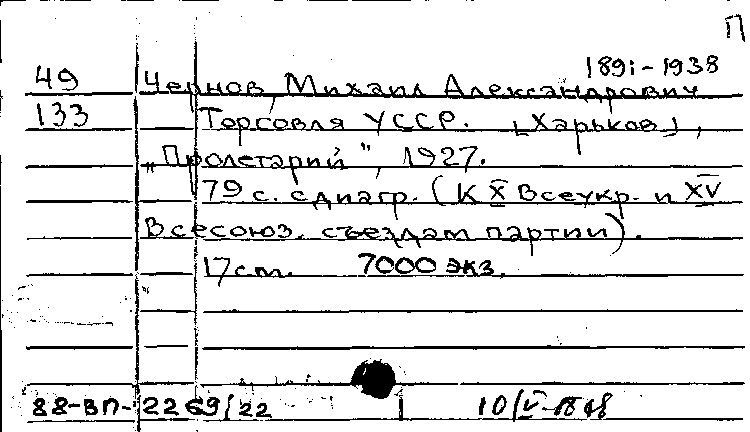 П
1891-1938
49 Чернов, Михаил Александрович
133 Торговля УССР. [Харьков],
„Пролетарий", 1927.
79 с. с диагр. (К X Всеукр. и XV
Всесоюз. съездам партии).
17 cm. 7000 экз.
88-ВП-2269/22 10/V-